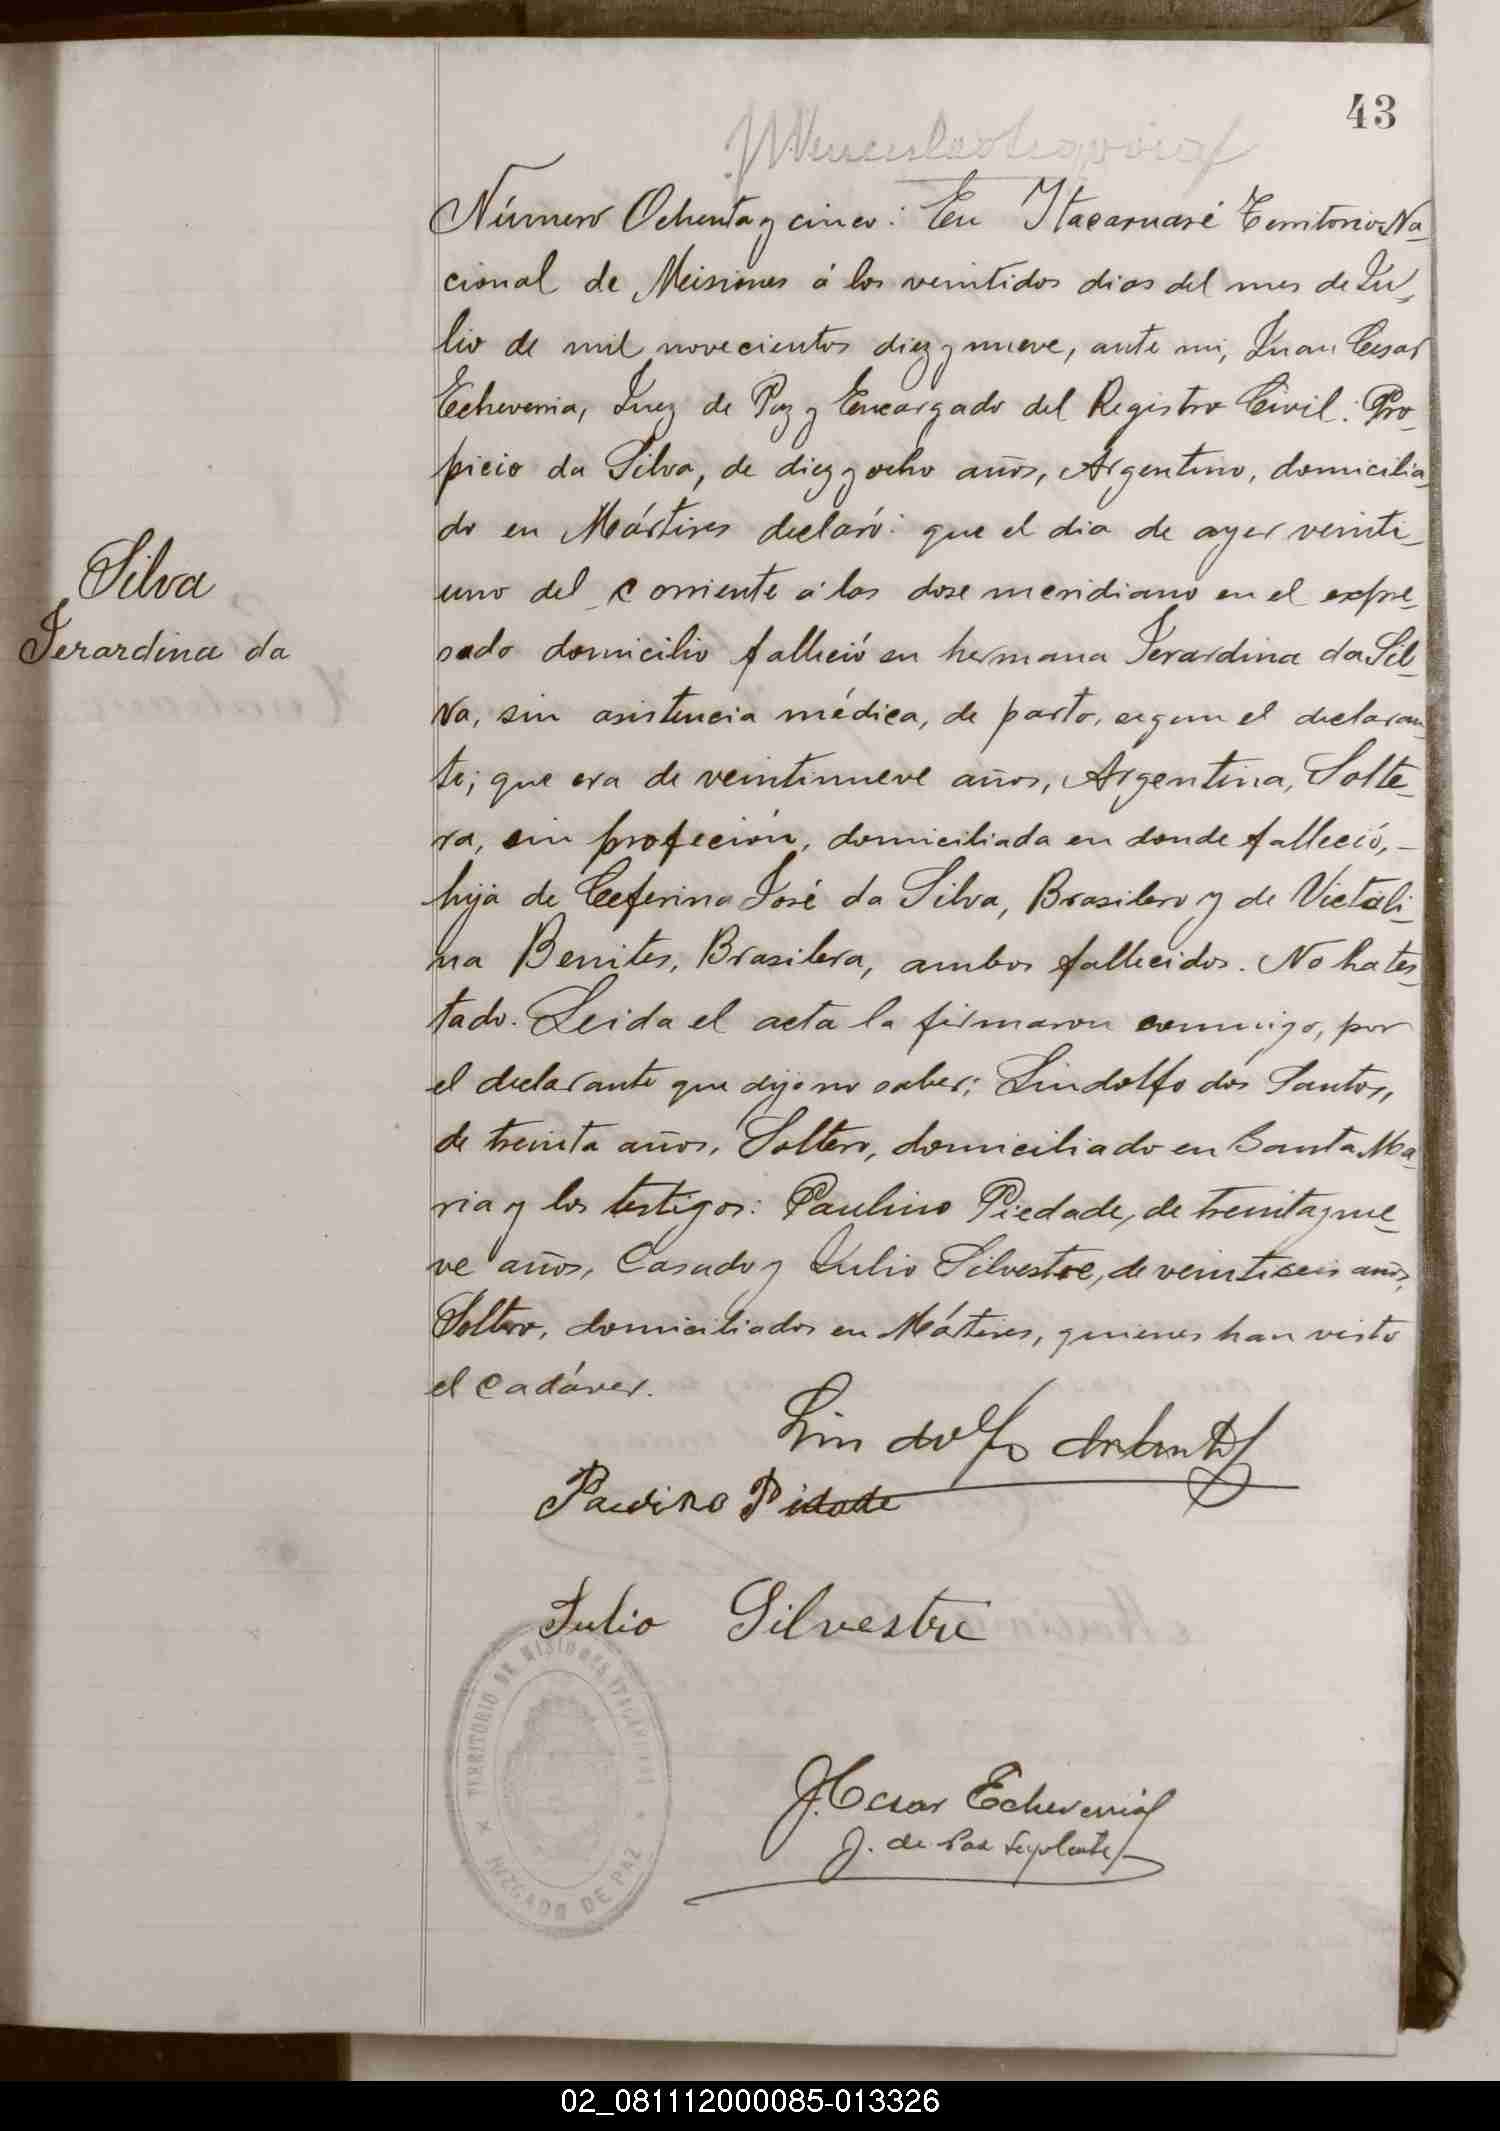 43
Número Ochenta y cinco: En Itacaruaré Territorio Na-
cional de Misiones á los veintidos dias del mes de Ju-
lio de mil novecientos diez y nueve, ante mi, Juan Cesar
Echeverria, Juez de Paz y Encargado del Registro Civil: Pro-
picio da Silva, de diez y ocho años, Argentino, domicilia-
do en Mártires declaró: que el dia de ayer veinti-
uno del corriente á las dose meridiano en el expre-
sado domicilio falleció su hermana Jerardina da Sil-
va, sin asistencia médica, de parto, segun el declaran-
te; que era de veintinueve años, Argentina, Solte-
ra, sin profeción, domiciliada en donde falleció, –
hija de Ceferino José da Silva, Brasilero y de Victali-
na Benites, Brasilera, ambos fallecidos. No ha tes-
tado. Leida el acta la firmaron conmigo, por
el declarante que dijo no saber; Lindolfo dos Santos,
de treinta años, Soltero, domiciliado en Santa Ma-
ria y los testigos: Paulino Piedade, de treinta y nue-
ve años, Casado y Julio Silvestre, de veintiseis años,
Soltero, domiciliados en Mártires, quienes han visto
el cadáver.
Silva
Jerardina da
Lindolfo
Paulino Pidade
Julio Silvestre
TERRITORIO DE MISIONES
JUZGADO DE PAZ
J. Cesar Echeverria
J. de Paz Suplente
02_081112000085-013326